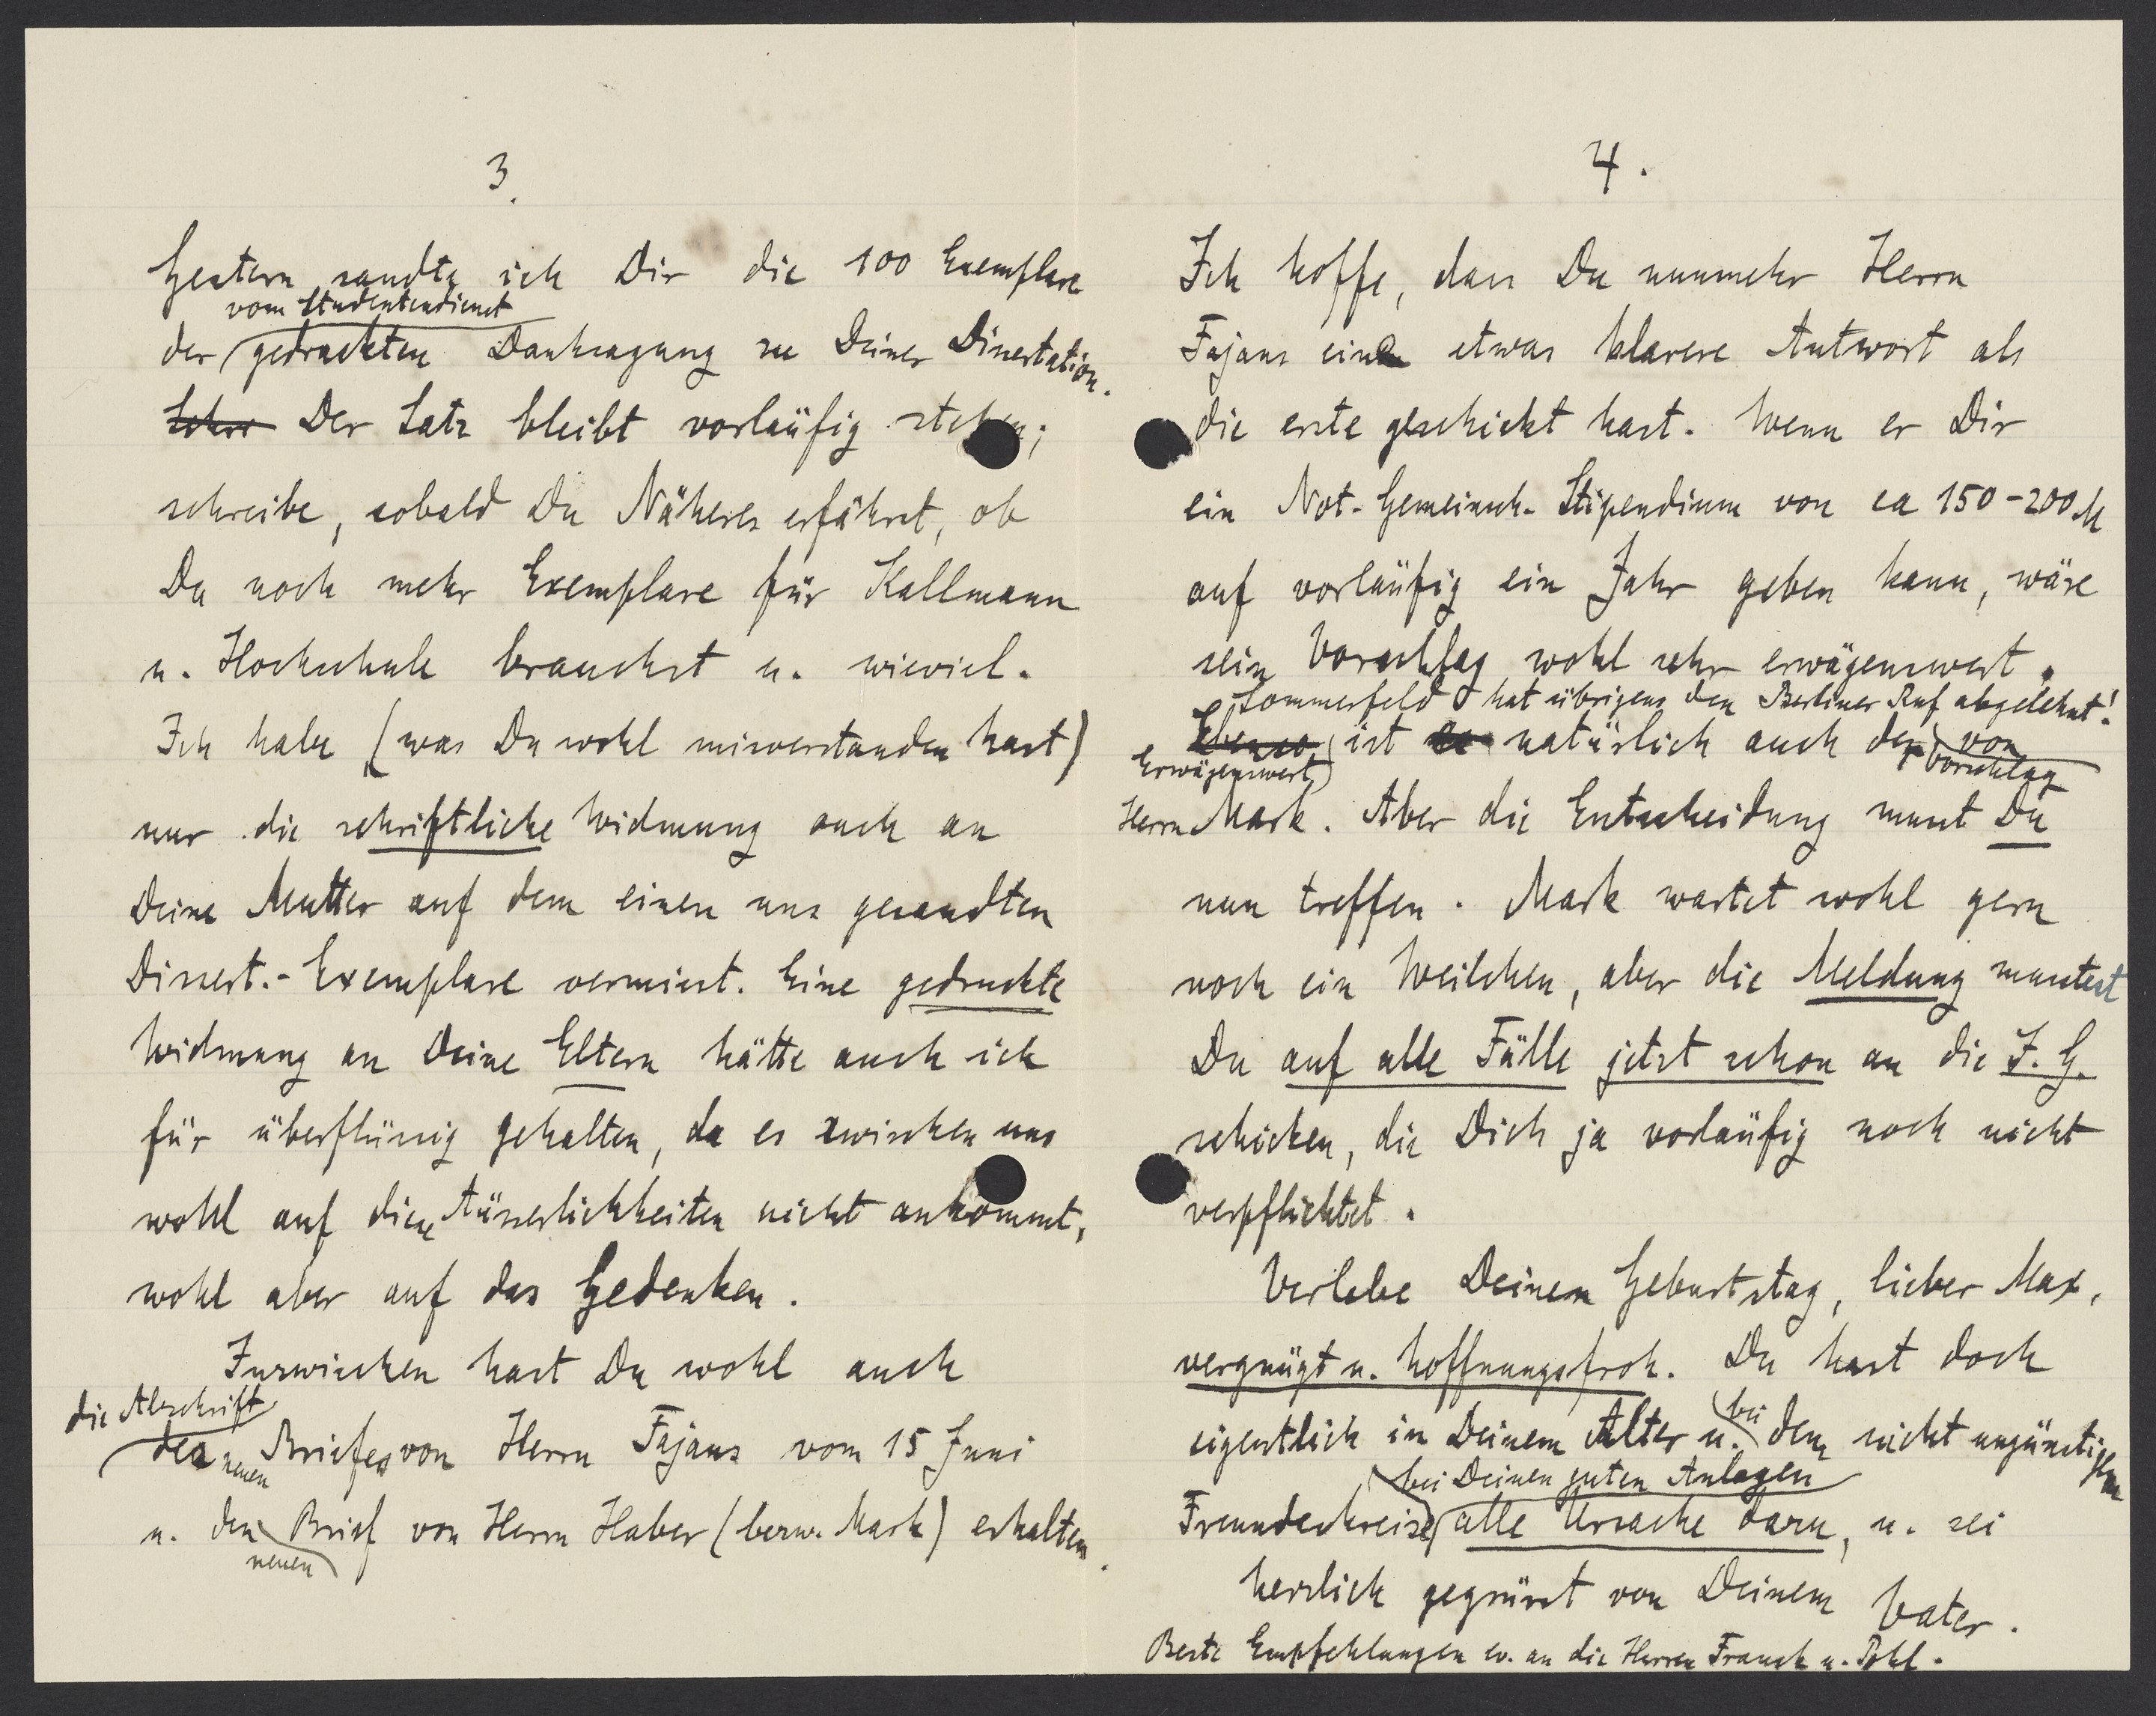 3.
Gestern sandte ich Dir die 100 Exemplare
vom Studentendienst
der gedruckten Danksagung zu Deiner Dissertation.
Der Satz bleibt vorläufig stehen;
schreibe, sobald Du Näheres erfährst, ob
Du noch mehr Exemplare für Kallmann
u. Hochschule brauchst u. wieviel.
Ich habe (was Du wohl missverstanden hast)
nur die schriftliche Widmung auch an
Deine Mutter auf dem einen uns gesandten
Dissert.-Exemplare vermisst. Eine gedruckte
Widmung an Deine Eltern hätte auch ich
für überflüssig gehalten, da es zwischen uns
wohl auf diese Äusserlichkeiten nicht ankommt,
wohl aber auf das Gedenken.
Inzwischen hast Du wohl auch
die Abschrift
des neuen Briefes von Herrn Fajans vom 15 Juni
u. den Brief von Herrn Haber (bezw. Mark) erhalten.
neuen
4.
Ich hoffe, dass Du nunmehr Herrn
Fajans eine etwas klarere Antwort als
die erste geschickt hast. Wenn er Dir
ein Not-Gemeinsch-Stipendium von ca 150-200 M
auf vorläufig ein Jahr geben kann, wäre
sein Vorschlag wohl sehr erwägenswert.
Sommerfeld hat übrigens den Berliner Ruf abgelehnt!
Ebenso ist es natürlich auch der von
Erwägenswert Vorschlag
Herrn Mark. Aber die Entscheidung musst Du
nun treffen. Mark wartet wohl gern
noch ein Weilchen, aber die Meldung musstest
Du auf alle Fälle jetzt schon an die I.G.
schicken, die Dich ja vorläufig noch nicht
verpflichtet.
Verlebe Deinen Geburtstag, lieber Max,
vergnügt u. hoffnungsfroh. Du hast doch
bei
eigentlich in Deinem Alter u. dem nicht ungünstigen
bei Deinen guten Anlagen
Freundeskreise alle Ursache dazu, u. sei
herzlich gegrüsst von Deinem Vater.
Beste Empfehlungen ev. an die Herren Franck u. Pohl.